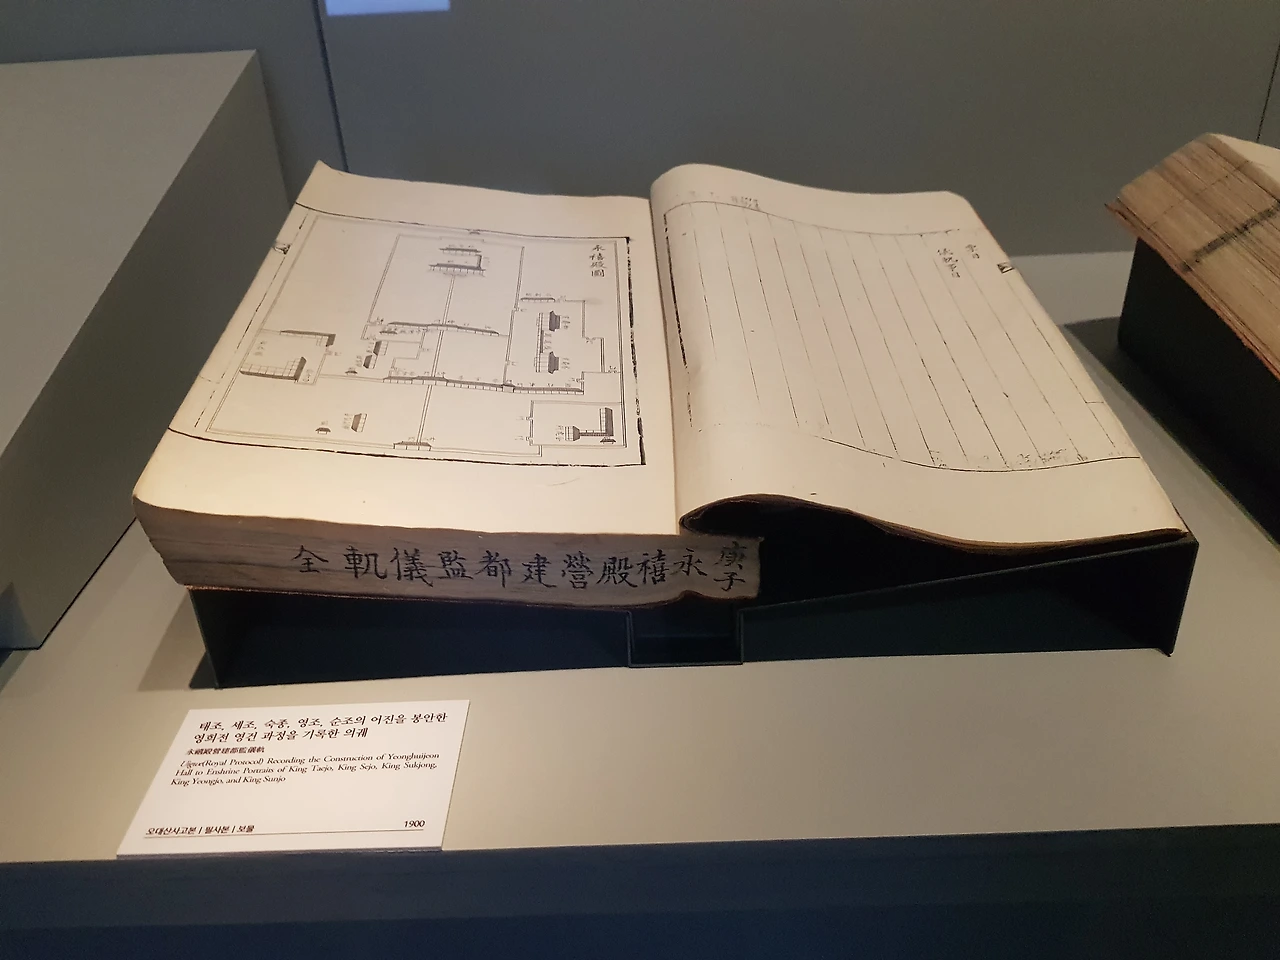 永禧殿圖
庚子
永禧殿營建都監儀軌 全
태조, 세조, 숙종, 영조, 순조의 어진을 봉안한
영희전 영건 과정을 기록한 의궤
永禧殿營建都監儀軌
Uigwe(Royal Protocol) Recording the Construction of Yeonghuijeon
Hall to Enshrine Portraits of King Taejo, King Sejo, King Sukjong,
King Yeongjo, and King Sunjo
오대산사고본 | 필사본 | 보물
1900